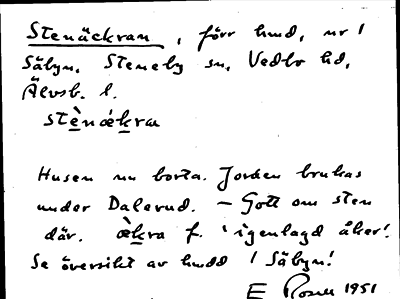 Stenäckran, förr hmd, nr 1
Säbyn, Steneby sn, Vedbo hd,
Älvsb. l.
stènækra
Husen nu borta. Jorden brukas
under Dalerud. – Gott om sten
där. æ̀kra f. 'igenlagd åker'.
Se översikt av hmdd / Säbyn!
E Rosell 1951